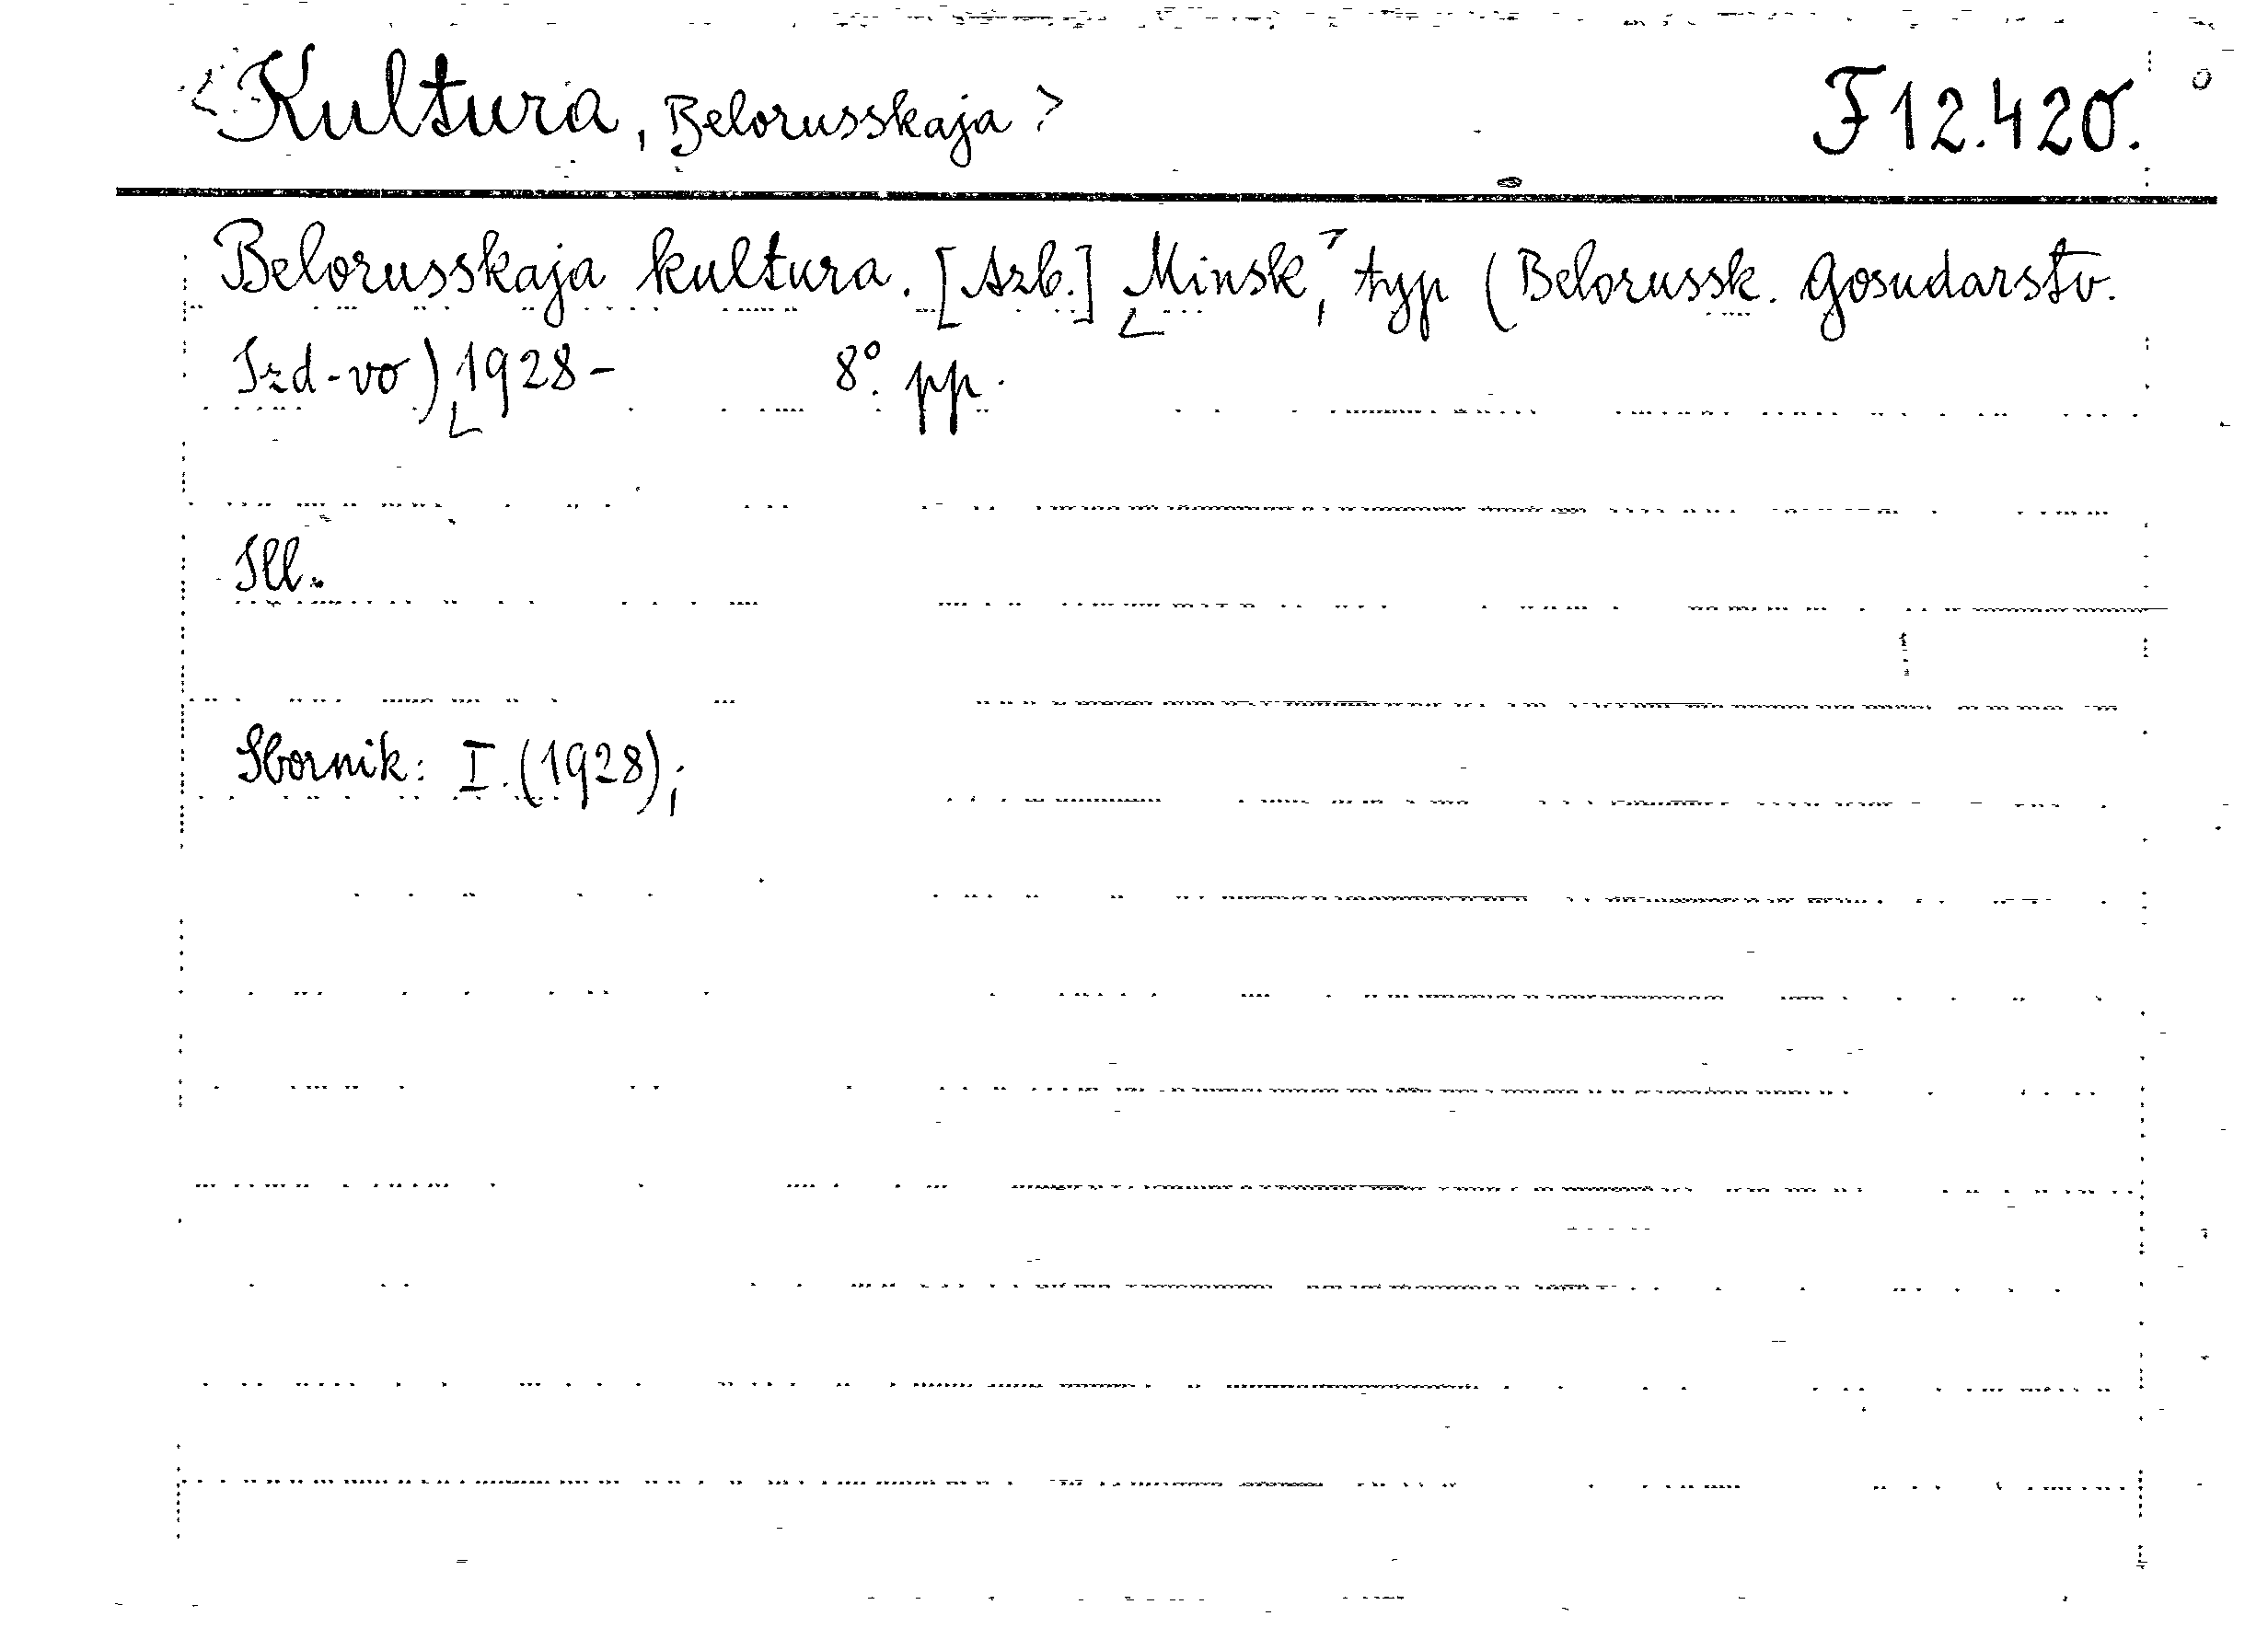 <Kultura, Belorusskaja> F 12.420.
Belorusskaja kultura. [Azb.] Minsk, typ (Belorussk. Gosudarstv.
Izd-vo) 1928- 8° pp.
Ill.
Sbornik: I. (1928);